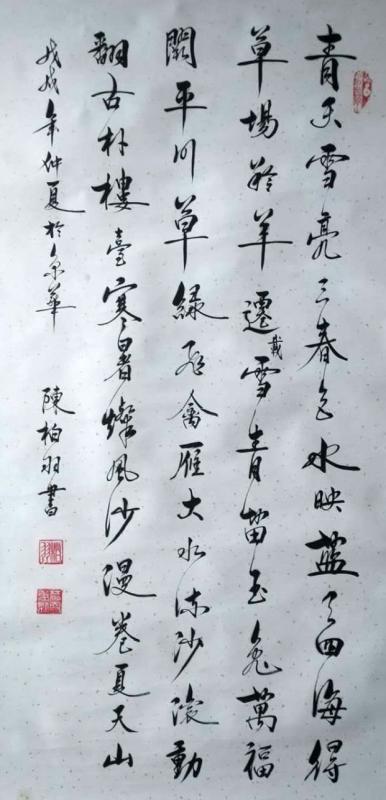 青天雪亮三春色水映藍天四海得
草場羚羊遷戴雪青留玉兔萬福
闊平川草綠飛禽雁大水流沙動
翻古朴樓臺寒暑燦風沙漫卷夏天山
戊戌年仲夏於京華 陳柏羽書